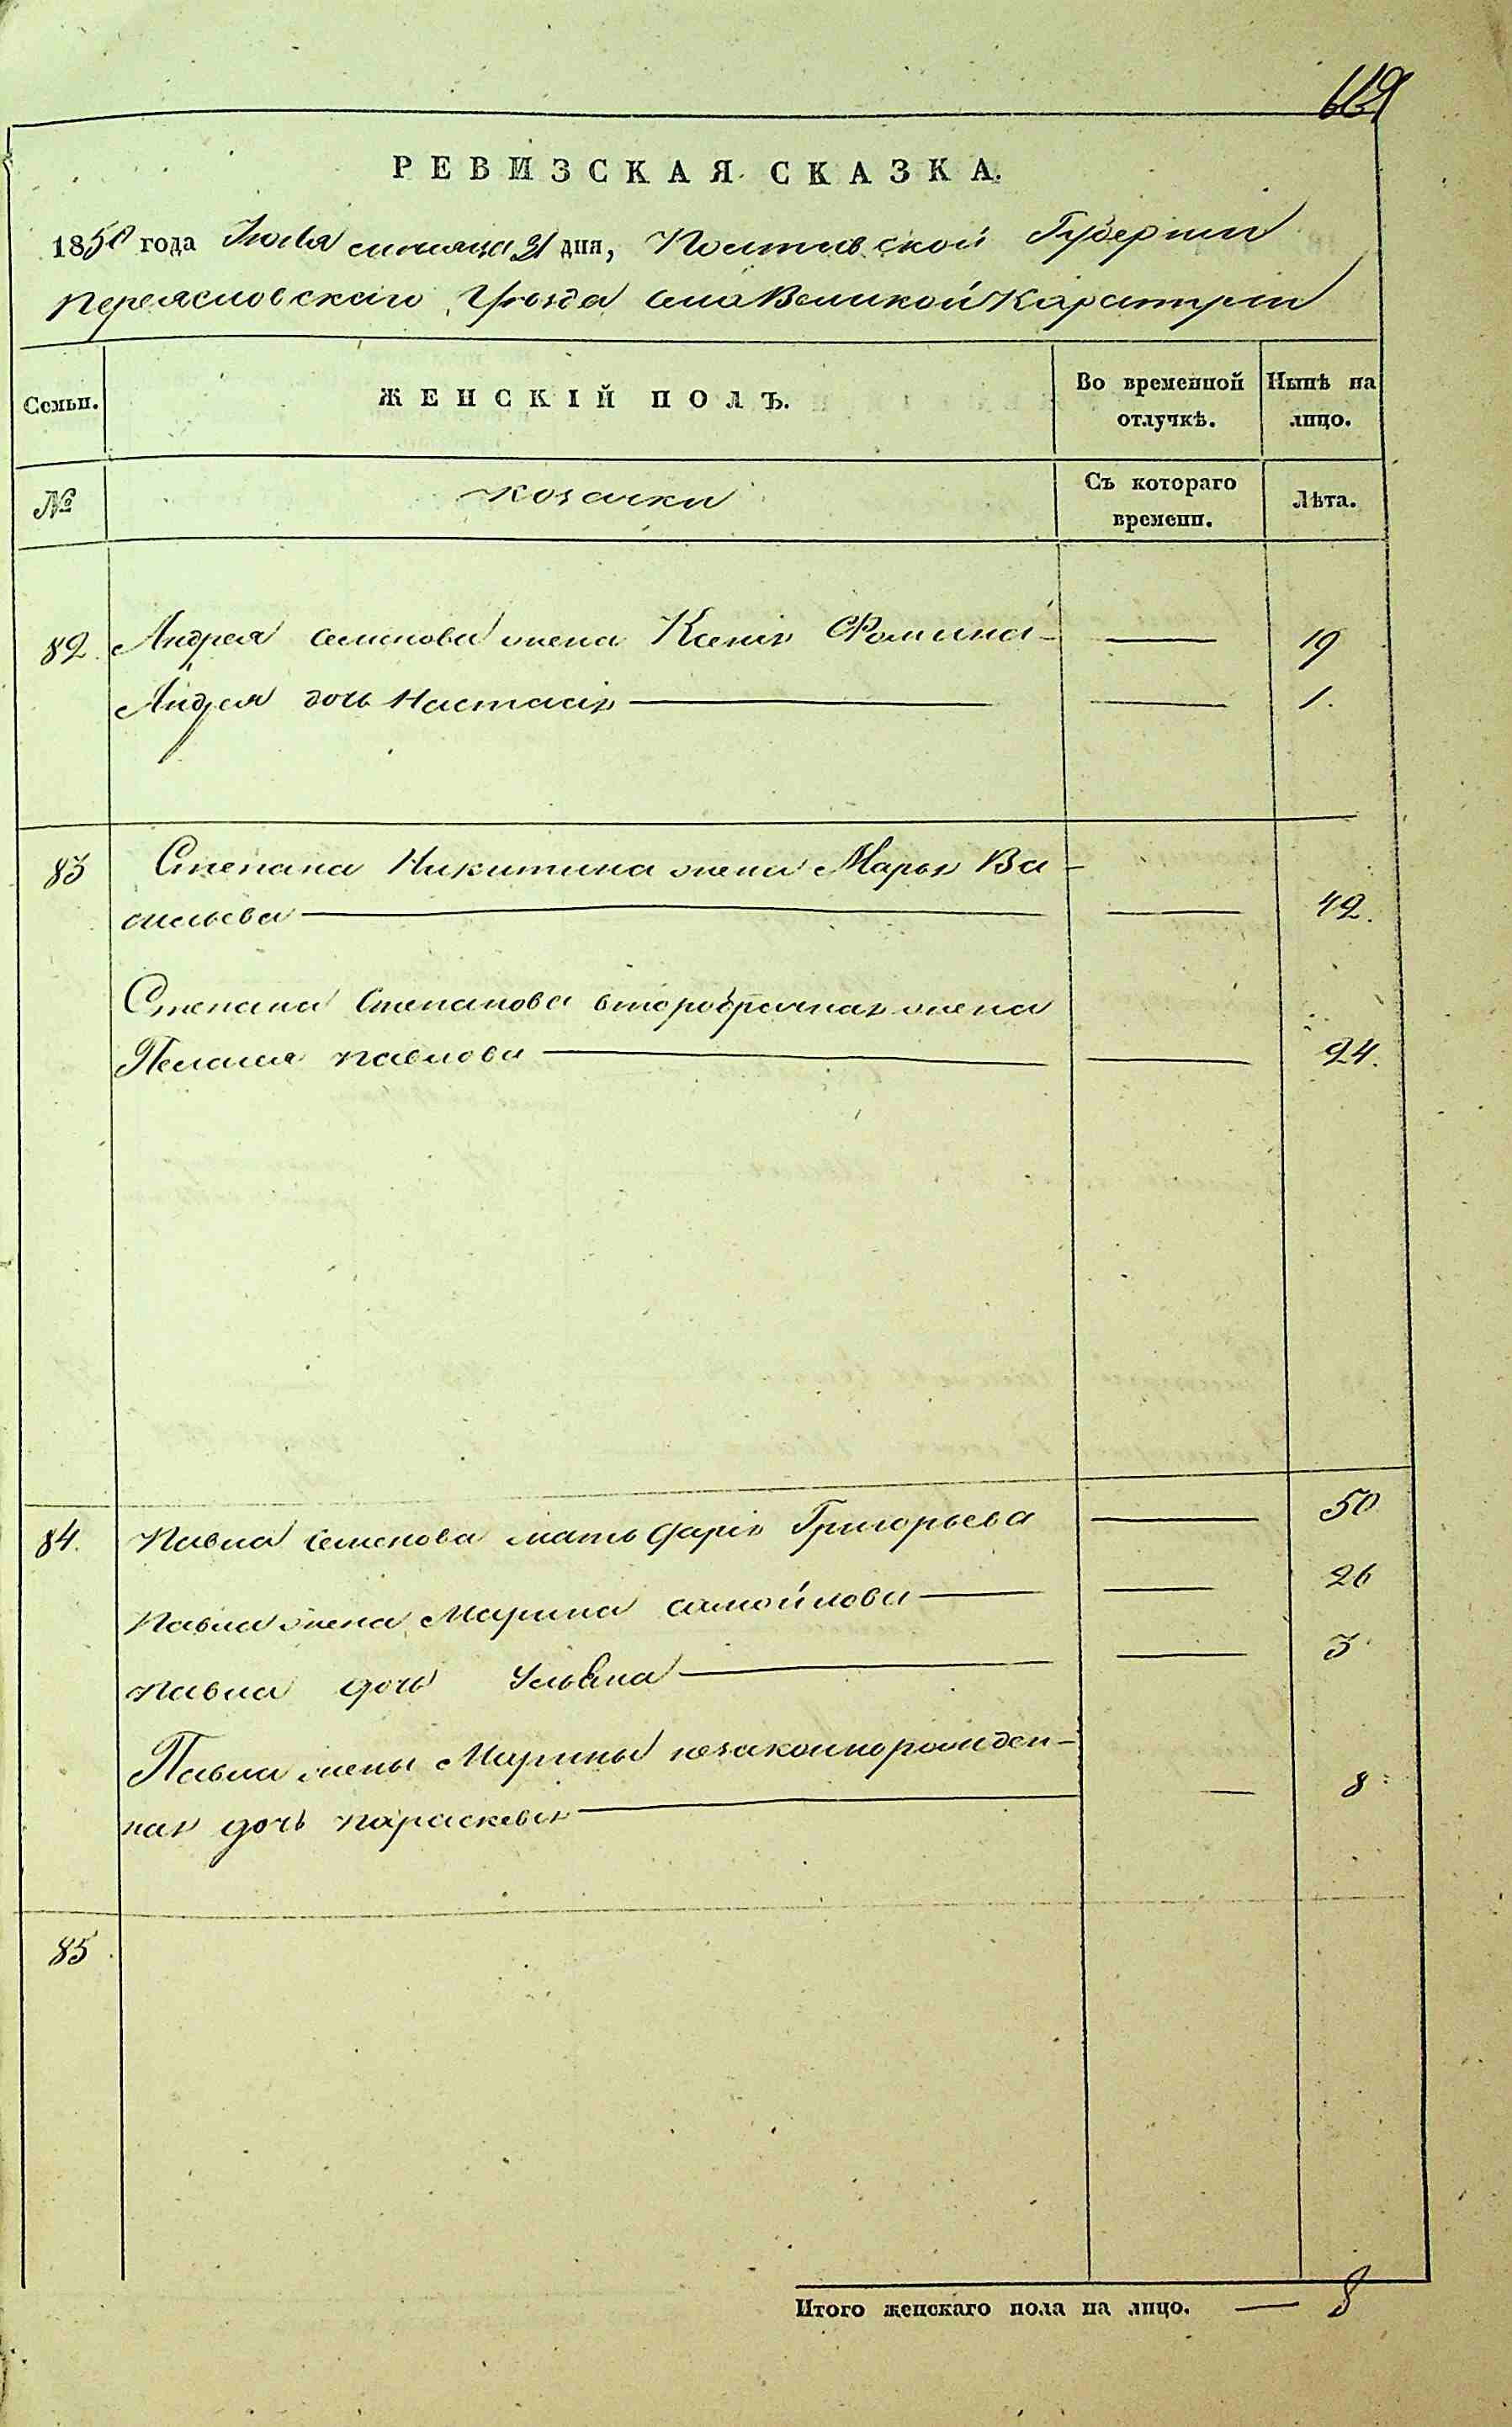 669
РЕВИЗСКАЯ СКАЗКА.
1850 года Июля месяца 31 дня, Полтавской Губернии
Переясловскаго Уѣзда села Великой Каратули
Семьи. ЖЕНСКІЙ ПОЛЪ. Во временной отлучкѣ. Нынѣ на лицо.
№ козачки Съ котораго времени. Лѣта.
82. Андрея Семенова жена Ксенія Фомина — — 19
Андрея дочь Настасія — — 1.
83 Степана Никитина жена Марья Ва-
сильева — — 42.
Степана Степанова второбрачная жена
Пелагия Павлова — — 24.
84. Павла Семенова мать Дарія Григорьева — 50
Павла жена Марина Самойлова — — 26
Павла дочь Ульяна — — 3
Павла жены Марины незаконнорожден-
ная дочь Параскевія — — 8
85
Итого женскаго пола на лицо. — 8